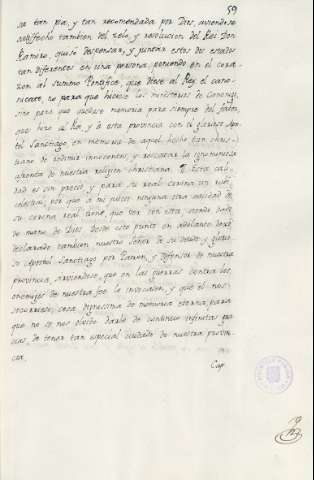 59
sa tan pia, y tan recomendada por Dios, aviendose
satisfecho tambien del zelo, y resolucion del Rei Don
Ramiro, quisó despensar, y juntar estos dos estados
tan diferentes en una persona, poniendo en el cora-
zon al summo Pontifice, que diese al Rey el cano-
nicato, no para que hiciese los ministerios de Canonigo,
sino para que quedase memoria para siempre del favor
que hizo al Rei, y a esta provincia con el glorioso Apos-
tol Santiago, en memoria de aquel hecho tan chris-
tiano de redimir innocentes, y rescatar la ignominiosa
afrenta de nuestra religion christiana. Esta cali-
dad es sin precio, y para su real corona un
celestial, por que a mi juicio ninguna otra calidad de
su corona real tiene, que ver con esta, siendo
de mano de Dios. Desde este punto en adelante
declarado tambien nuestro Señor de su deudo, y glorio-
so apostol Santiago por Patron, y defensor de nuestra
provincia, aviendose, que en las guerras contra los
enemigos de nuestra fee le invocasen, y que el nos
socorriese, cosa dignissima de memoria eterna, para
que no se nos olvide darle de continuo infinitas gra-
cias, de tener tan especial cuidado de nuestra provin-
cia.
Cap.